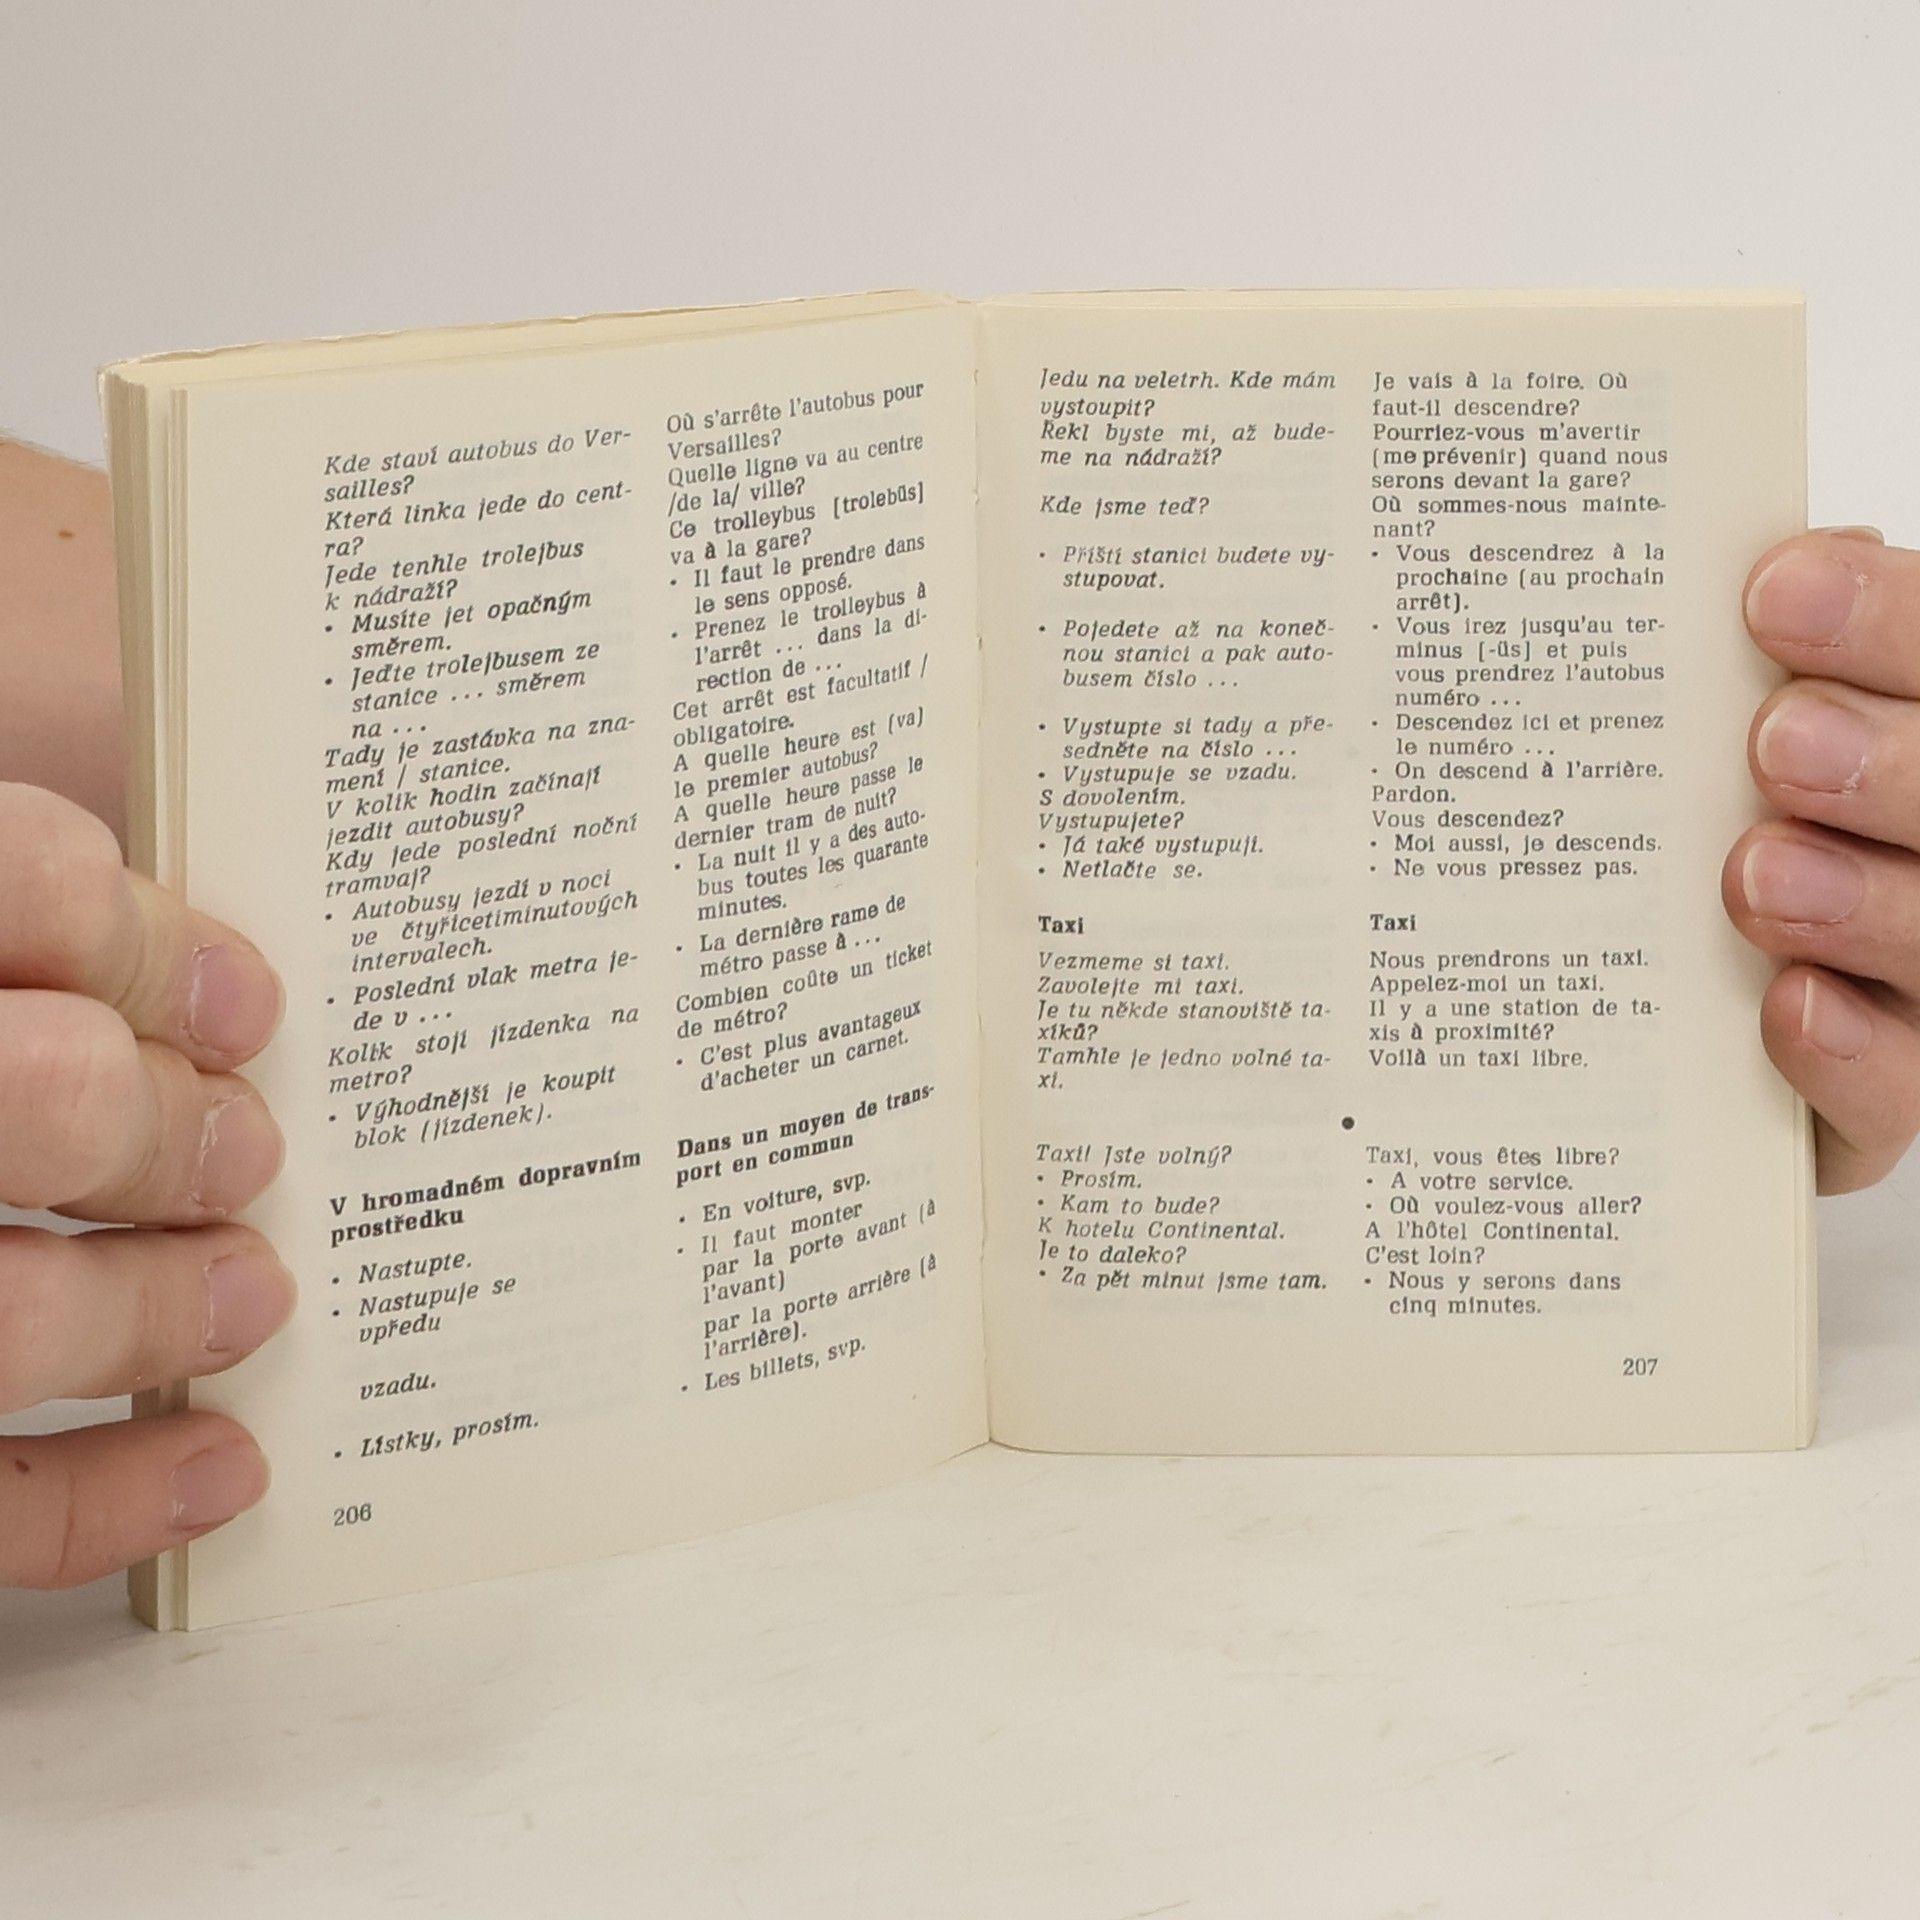 Kde staví autobus do Ver-
sailles?
Která linka jede do cent-
ra?
Jede tenhle trolejbus
k nádraží?
• Musíte jet opačným
směrem.
• Jeďte trolejbusem ze
stanice ... směrem
na ...
Tady je zastávka na zna-
mení / stanice.
V kolik hodin začínají
jezdit autobusy?
Kdy jede poslední noční
tramvaj?
• Autobusy jezdí v noci
ve čtyřicetiminutových
intervalech.
• Poslední vlak metra je-
de v ...
Kolik stojí jízdenka na
metro?
• Výhodnější je koupit
blok (jízdenek).
V hromadném dopravním
prostředku
• Nastupte.
• Nastupuje se
vpředu
vzadu.
• Lístky, prosím.
206
Où s'arrête l'autobus pour
Versailles?
Quelle ligne va au centre
/de la/ ville?
Ce trolleybus [trolebüs]
va à la gare?
• Il faut le prendre dans
le sens opposé.
• Prenez le trolleybus à
l'arrêt ... dans la di-
rection de ...
Cet arrêt est facultatif /
obligatoire.
A quelle heure est (va)
le premier autobus?
A quelle heure passe le
dernier tram de nuit?
• La nuit il y a des auto-
bus toutes les quarante
minutes.
• La dernière rame de
métro passe à ...
Combien coûte un ticket
de métro?
• C'est plus avantageux
d'acheter un carnet.
Dans un moyen de trans-
port en commun
• En voiture, svp.
• Il faut monter
par la porte avant (à
l'avant)
par la porte arrière (à
l'arrière).
• Les billets, svp.
Jedu na veletrh. Kde mám
vystoupit?
Řekl byste mi, až bude-
me na nádraží?
Kde jsme teď?
• Příští stanici budete vy-
stupovat.
• Pojedete až na koneč-
nou stanici a pak auto-
busem číslo ...
• Vystupte si tady a pře-
sedněte na číslo ...
• Vystupuje se vzadu.
S dovolením.
Vystupujete?
• Já také vystupuji.
• Netlačte se.
Taxi
Vezmeme si taxi.
Zavolejte mi taxi.
Je tu někde stanoviště ta-
xíků?
Tamhle je jedno volné ta-
xi.
Taxi! Jste volný?
• Prosím.
• Kam to bude?
K hotelu Continental.
Je to daleko?
• Za pět minut jsme tam.
Je vais à la foire. Où
faut-il descendre?
Pourriez-vous m'avertir
(me prévenir) quand nous
serons devant la gare?
Où sommes-nous mainte-
nant?
• Vous descendrez à la
prochaine (au prochain
arrêt).
• Vous irez jusqu'au ter-
minus [-üs] et puis
vous prendrez l'autobus
numéro ...
• Descendez ici et prenez
le numéro ...
• On descend à l'arrière.
Pardon.
Vous descendez?
• Moi aussi, je descends.
• Ne vous pressez pas.
Taxi
Nous prendrons un taxi.
Appelez-moi un taxi.
Il y a une station de ta-
xis à proximité?
Voilà un taxi libre.
●
Taxi, vous êtes libre?
• A votre service.
• Où voulez-vous aller?
A l'hôtel Continental.
C'est loin?
• Nous y serons dans
cinq minutes.
207